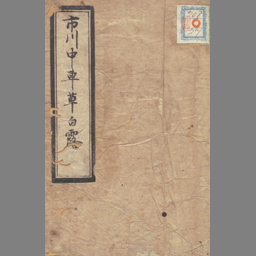 市川中車草白露